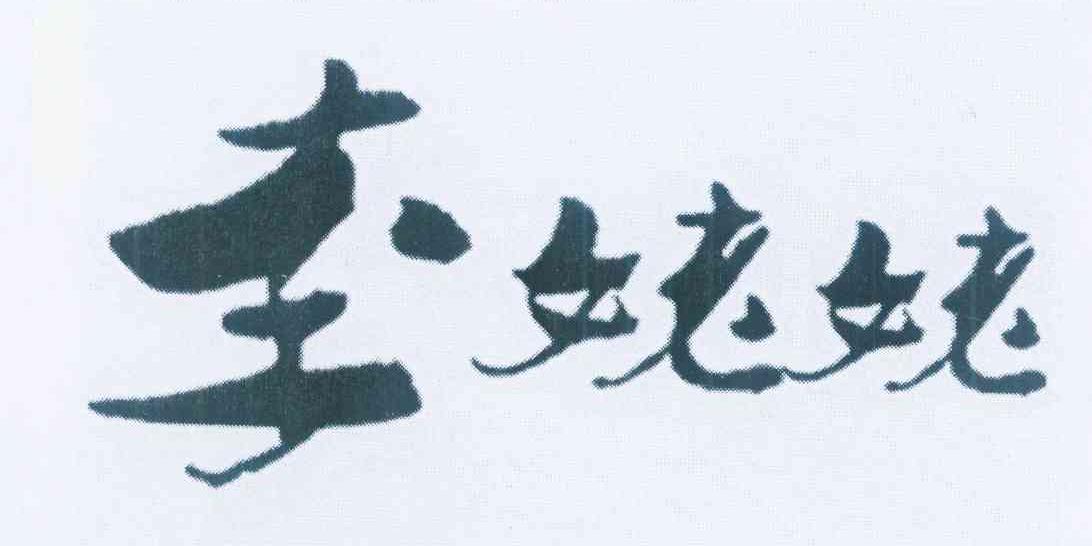 李姥姥